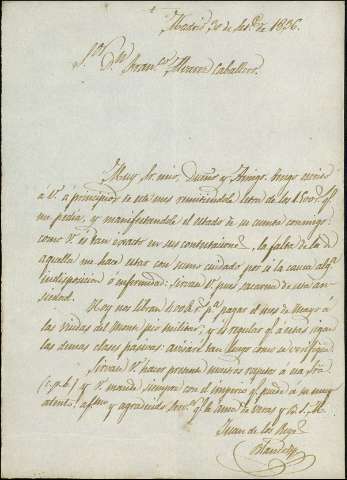 Madrid 30 de Set.e de 1836.
S.or D.n
Fran.co Alvarez Caballero.
Muy Sr. mio, Dueño y Amigo: tengo escrito
á V. á principios de este mes remitiendole letra de los q.e
me pedia, y manifestandole el estado de su cuenta conmigo:
como V. es tan exacto en sus contestacione.s, la falta de la de
aquella me hace estar con sumo cuidado por si la causa alg.a
indisposicion ó enfermedad: sirvase V. pues sacarme de esta an-
siedad.
Hoy nos libran p.a pagar el mes de Mayo á
las viudas del monte pio militar; y es regular q.e á estas sigan
las demas clases pasivas: avisaré tan luego como se verifique.
Sirvase V. hacer presente nuestros respetos á esa Sra
(c.p.b.) y V. mande siempre con el imperio q.e puede á su muy
atento, af.mo y agradecido Serv.or q.e le ama de veras y B. S. M.
Juan de los Reyes